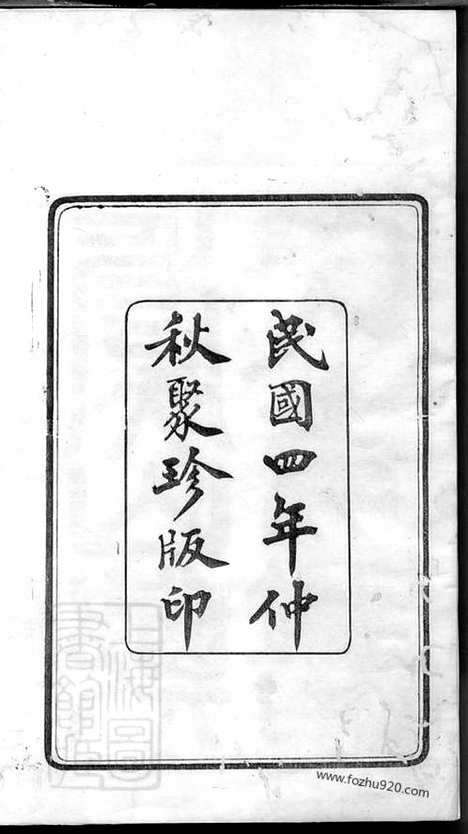 民國四年仲
秋聚珍版印
www.fozhu920.com